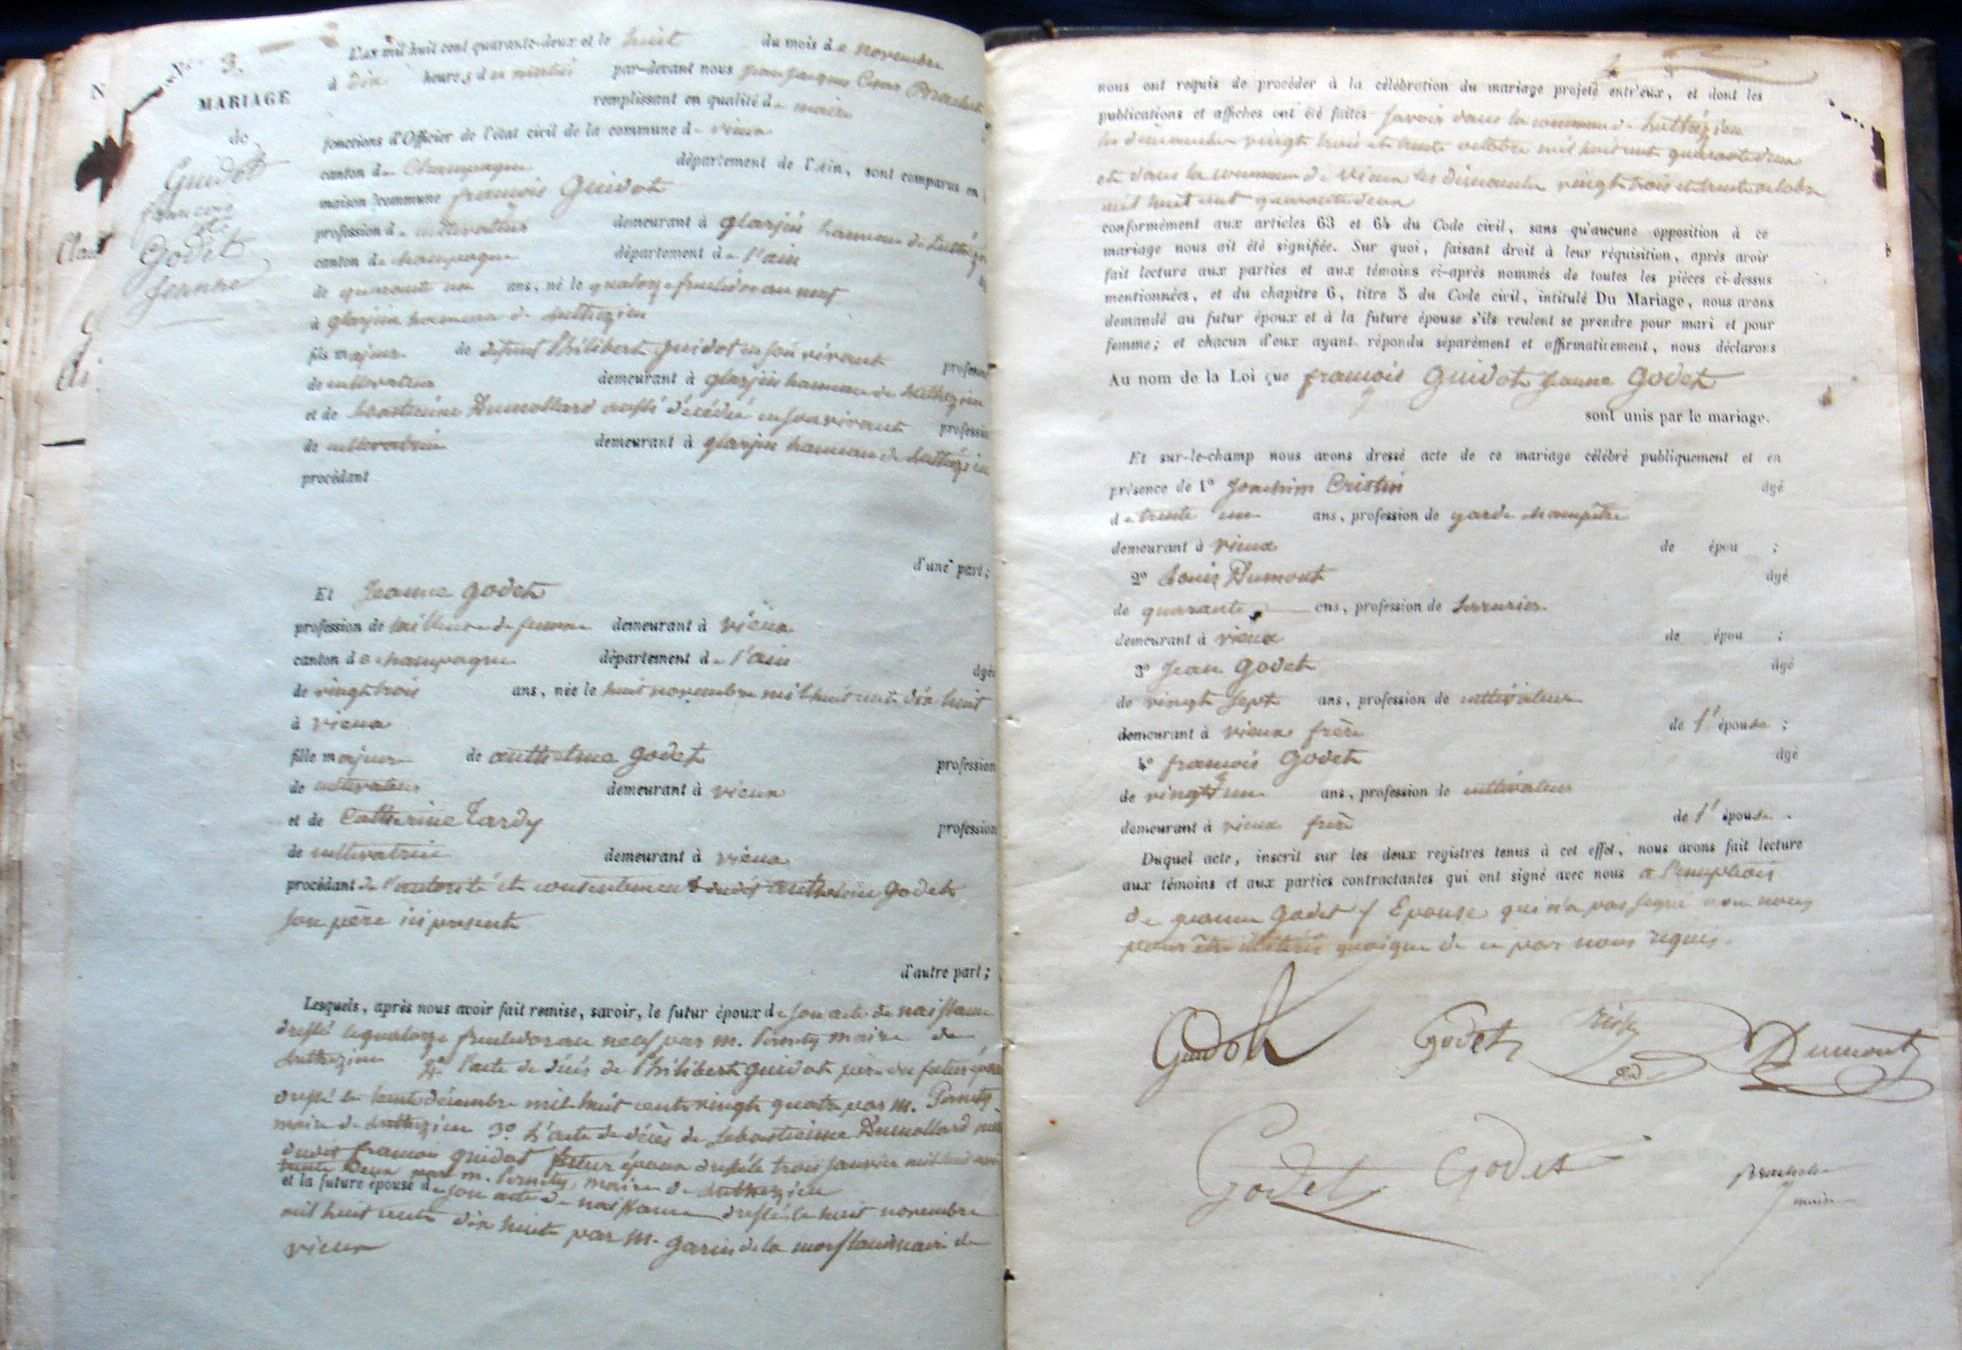 3.
MARIAGE
de
Guidot
françois
et
Godet
Jeanne
L'an mil huit cent quarante-deux et le huit du mois de novembre
à Dix heures du matin par-devant nous jean jacques
remplissant en qualité de maire
fonctions d'Officier de l'état civil de la commune de vieux
canton de Champagne département de l'Ain, sont comparus en
maison commune françois Guidot
profession de cultivateur demeurant à glarjin hameau de
canton de champagne département de l'ain
de quarante un ans, né le quatorze fructidor an neuf
à glarjin hameau de Luthezieu
fils majeur de defunt Philibert guidot en son vivant profession
de cultivateur demeurant à glarjin hameau de Luthezieu
et de Sebastienne Dumollard aussi décédée en son vivant profession
de cultivatrice demeurant à glarjin hameau de Luthezieu
procédant
d'une part;
Et Jeanne godet
profession de tailleuse de femme demeurant à vieux
canton de champagne département de l'ain
âgée
de vingt trois ans, née le huit novembre mil huit cent dix huit
à vieux
fille majeure de anthelme godet profession
de cultivateur demeurant à vieux
et de Catherine Tardy profession
de cultivatrice demeurant à vieux
procédant de l'autorité et consentement dudit anthelme godet
son père ici présent
d'autre part;
Lesquels, après nous avoir fait remise, savoir, le futur époux de son acte de naissance
dressé le quatorze fructidor an neuf par m. maire de
Luthezieu 2º l'acte de décès de Philibert guidot père du futur époux
dressé le trente décembre mil huit cent vingt quatre par m.
maire de Luthezieu 3º L'acte de décès de Sebastienne Dumollard mère
dudit françois guidot futur époux dressé le trois janvier mil huit cent
trente deux par m. maire de Luthezieu
et la future épouse de son acte de naissance dressé le huit novembre
mil huit cent dix huit par M. garin de la maire de
vieux
nous ont requis de procéder à la célébration du mariage projeté entr'eux, et dont les
publications et affiches ont été faites savoir dans la commune de Luthezieu
les dimanches vingt trois et trente octobre mil huit cent quarante deux
et dans la commune de vieux les dimanches vingt trois et trente octobre
mil huit cent quarante deux
conformément aux articles 63 et 64 du Code civil, sans qu'aucune opposition à ce
mariage nous ait été signifiée. Sur quoi, faisant droit à leur réquisition, après avoir
fait lecture aux parties et aux témoins ci-après nommés de toutes les pièces ci-dessus
mentionnées, et du chapitre 6, titre 5 du Code civil, intitulé Du Mariage, nous avons
demandé au futur époux et à la future épouse s'ils veulent se prendre pour mari et pour
femme; et chacun d'eux ayant répondu séparément et affirmativement, nous déclarons
Au nom de la Loi que françois Guidot Jeanne Godet
sont unis par le mariage.
Et sur-le-champ nous avons dressé acte de ce mariage célébré publiquement et en
présence de 1º Joachim Cristin âgé
de trente un ans, profession de garde champêtre
demeurant à vieux de épou ;
2º Louis Dumont âgé
de quarante ans, profession de serrurier
demeurant à vieux de épou ;
3º Jean Godet âgé
de vingt sept ans, profession de cultivateur
demeurant à vieux frère de l'épouse ;
4º françois Godet âgé
de vingt un ans, profession de cultivateur
demeurant à vieux frère de l'épouse.
Duquel acte, inscrit sur les deux registres tenus à cet effet, nous avons fait lecture
aux témoins et aux parties contractantes qui ont signé avec nous a l'exception
de jeanne godet Epouse qui n'a pas signé avec nous
pour être illétérée quoique de ce par nous requis.
Guidot Godet Dumont
Godet Godet
maire